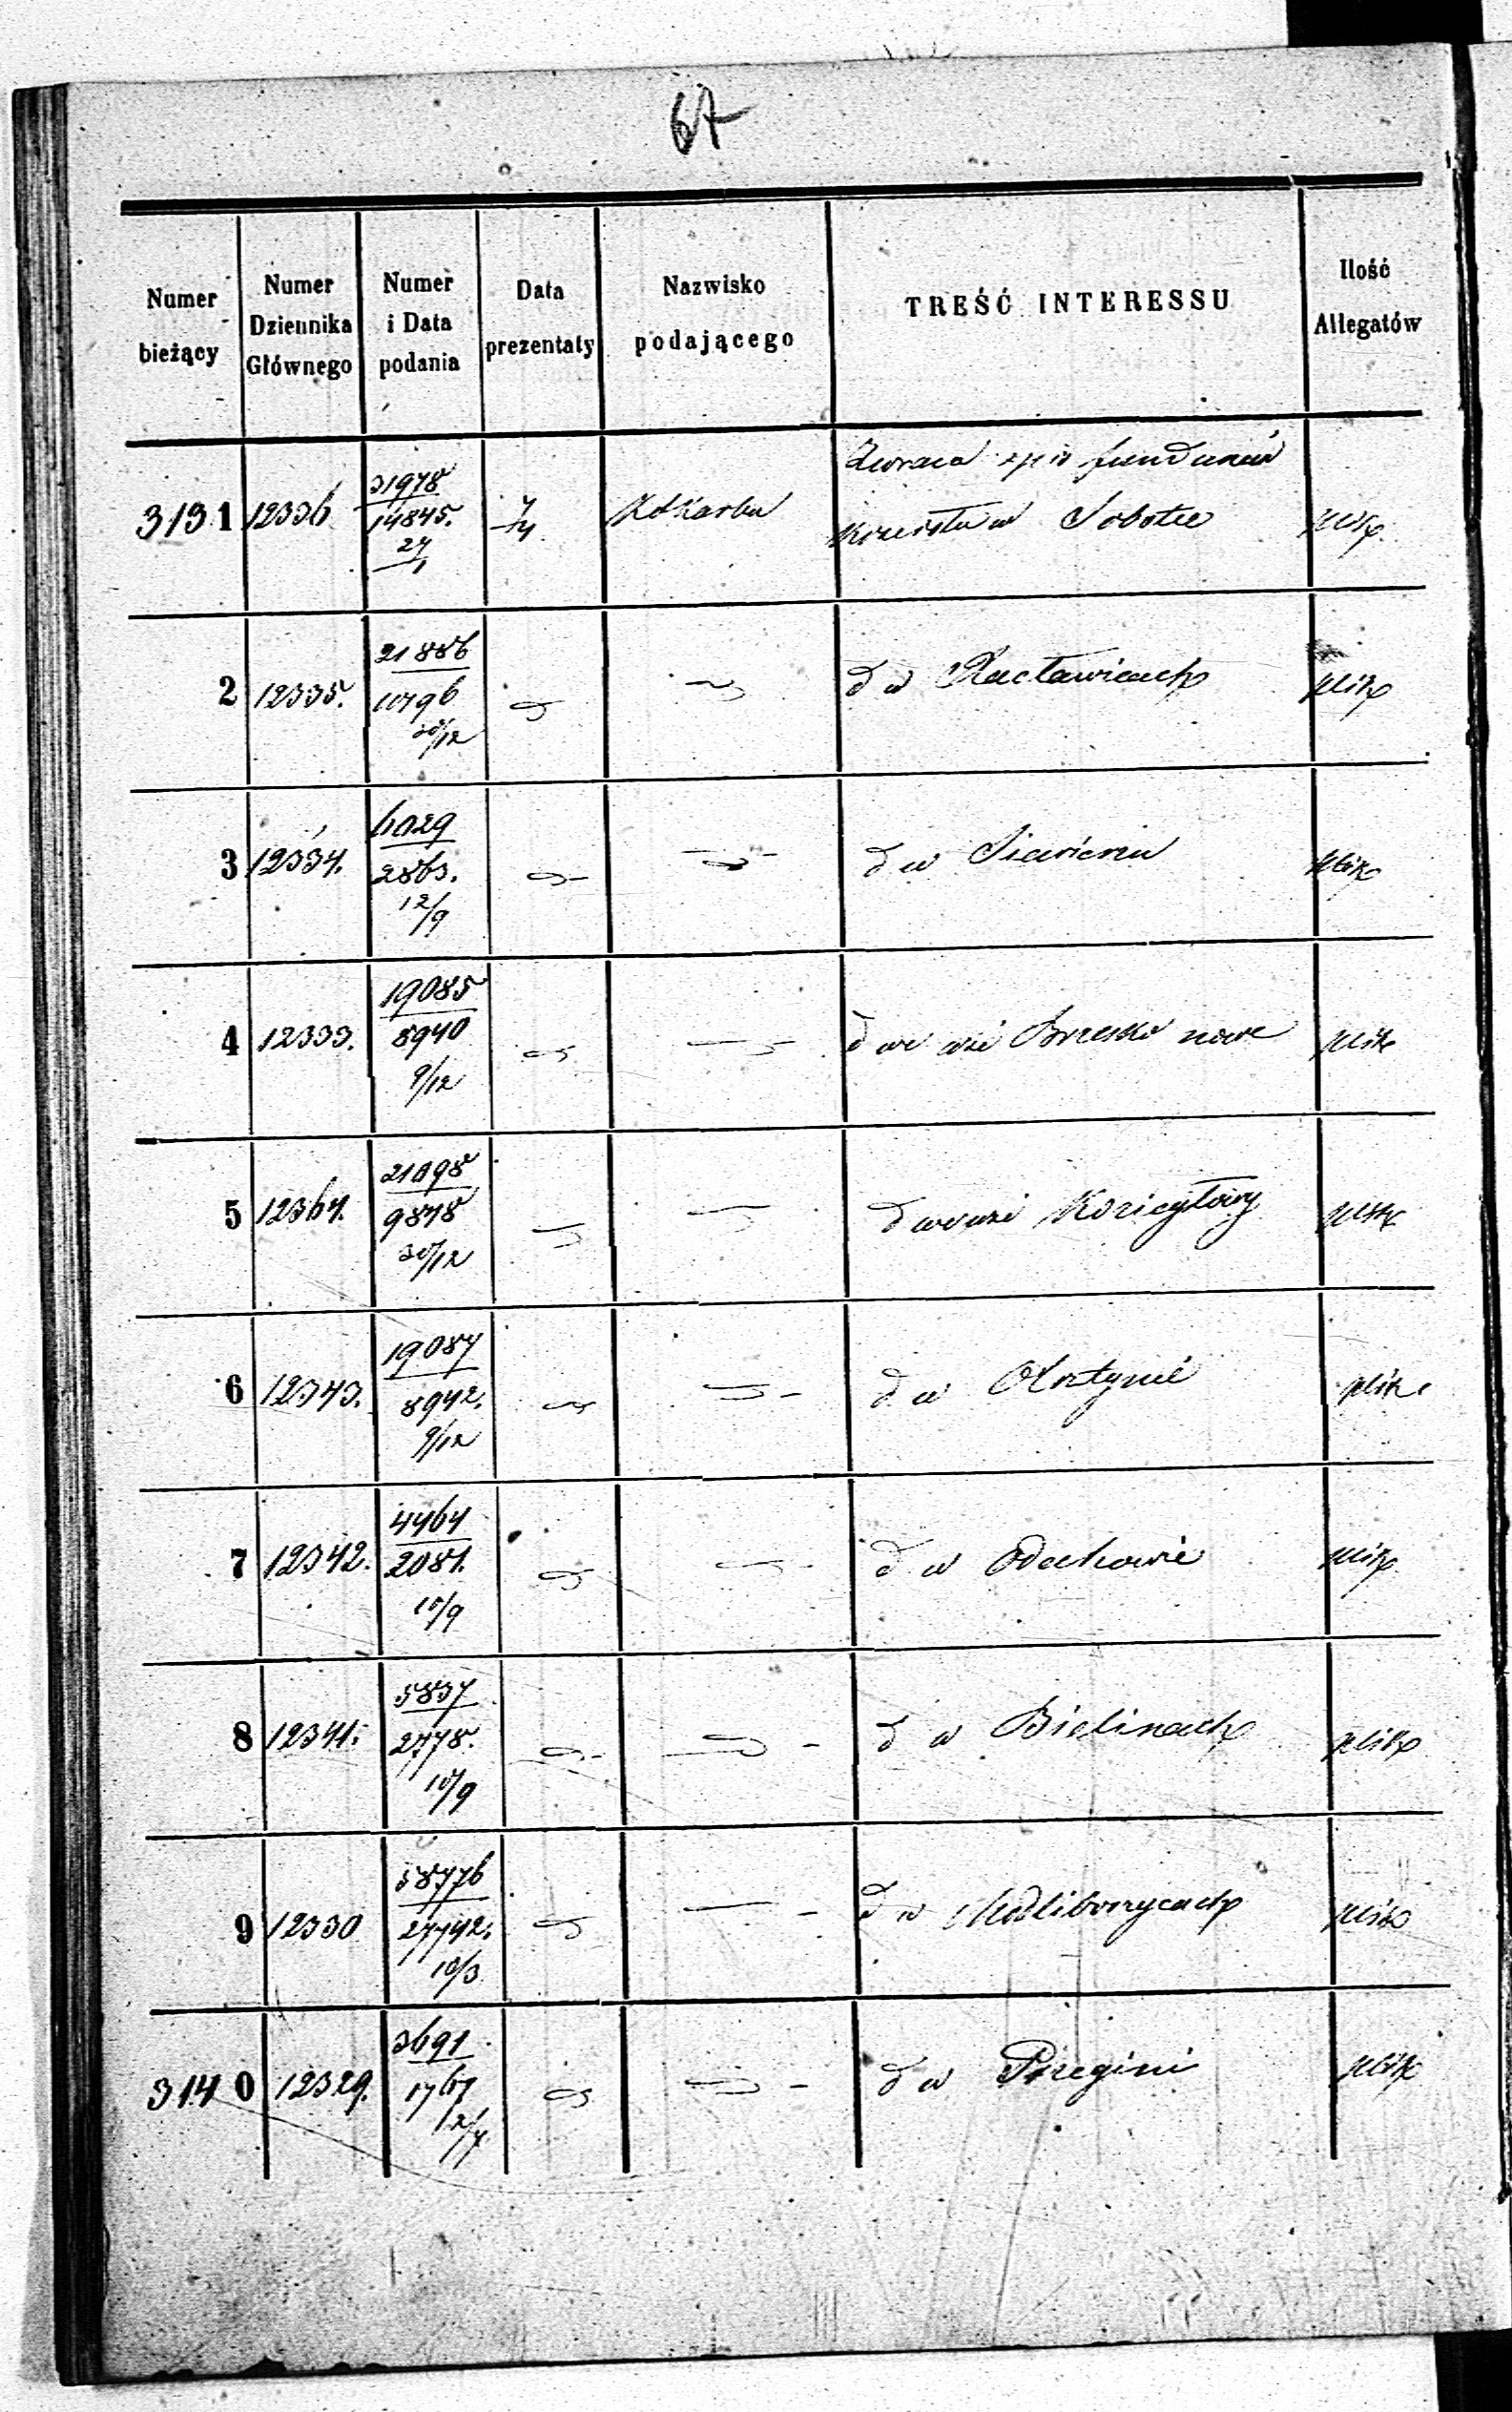 67
Numer bieżący
Numer Dziennika Głównego
Numer i Data podania
Data prezentaty
Nazwisko podającego
TREŚĆ INTERESSU
Ilość Allegatów
3131 12336 31978 14845. 27/1 7/4 Zwraca spis funduszów
w Sobotce
2 12335. 21886 10796 20/12 d w Racławicach plik
3 12334. 6029 2863. 12/9 d w Siewierzu plik
4 12333. 19085 8940 9/12 d we wsi Brzesko nowe plik
5 12364. 21098 9878 20/12 d we wsi plik
6 12343. 19087 8942. 9/12 d w plik
7 12342. 4464 2081. 10/9 d w Odechowie plik
8 12341. 5837 2778. 10/9 d w Bielinach plik
9 12330 58776 27742. 10/3 d w Modliborzycach plik
3140 12329. 3691 1767 12/7 d w Przegini plik